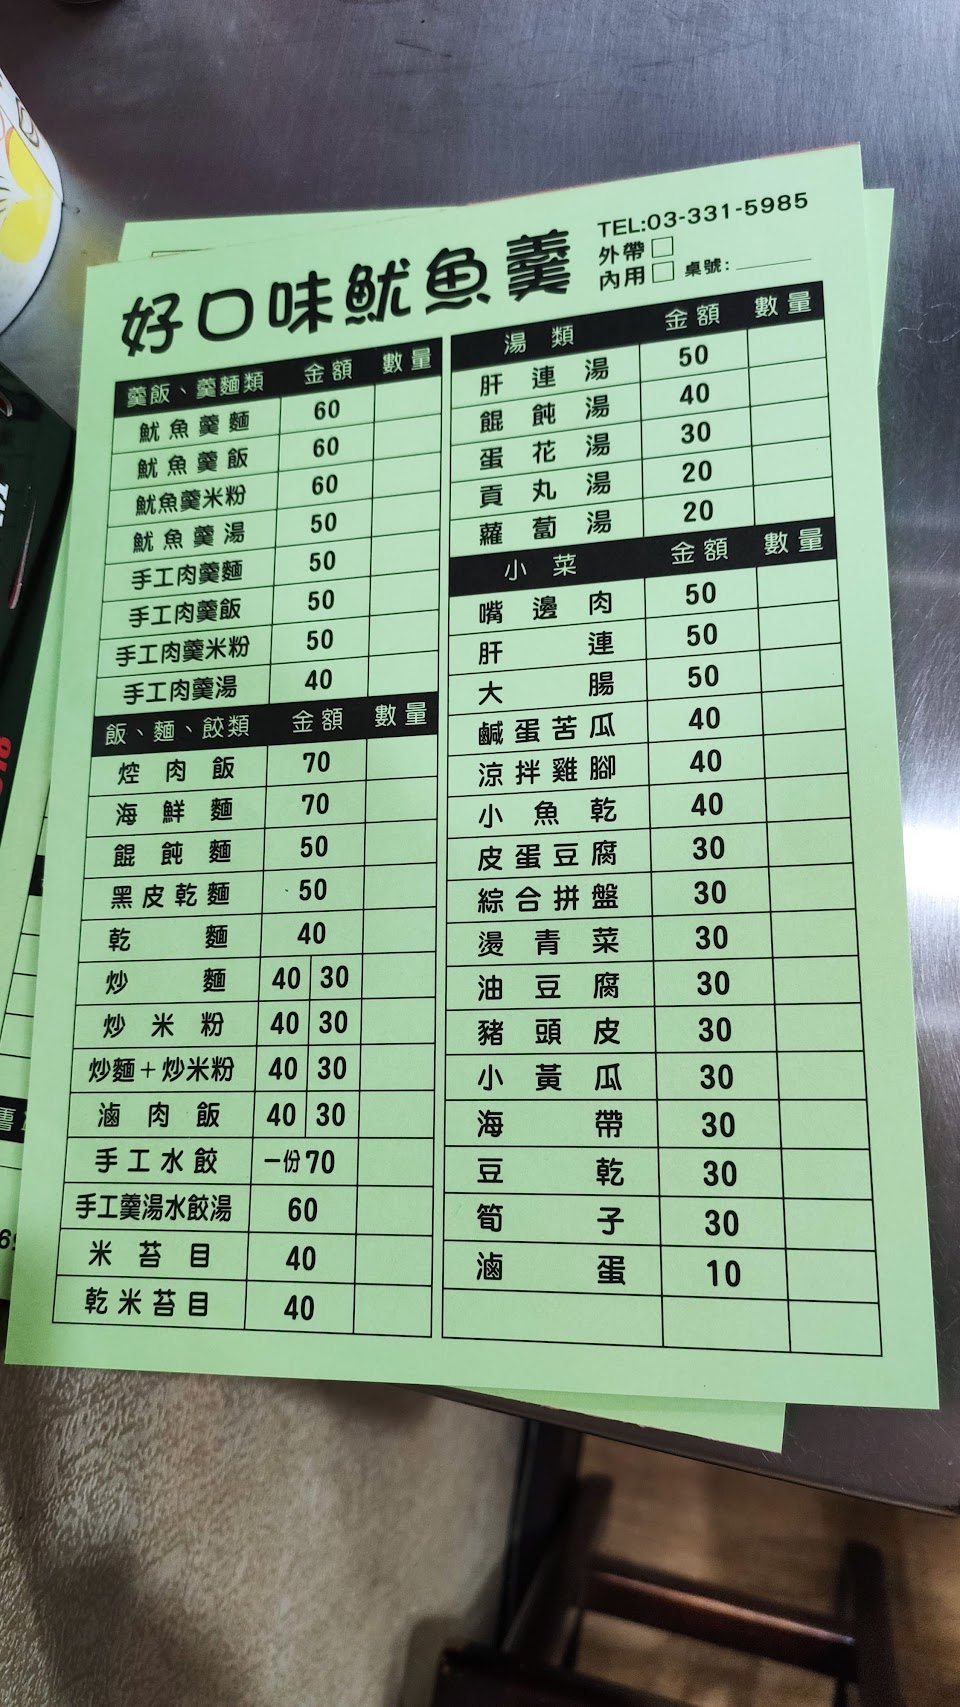 好口味魷魚羹
TEL:03-331-5985
外帶□
內用□ 桌號:
羹飯、羹麵類 金額 數量
魷魚羹麵 60
魷魚羹飯 60
魷魚羹米粉 60
魷魚羹湯 50
手工肉羹麵 50
手工肉羹飯 50
手工肉羹米粉 50
手工肉羹湯 40
飯、麵、餃類 金額 數量
焢肉飯 70
海鮮麵 70
餛飩麵 50
黑皮乾麵 50
乾麵 40
炒麵 40 30
炒米粉 40 30
炒麵+炒米粉 40 30
滷肉飯 40 30
手工水餃 一份70
手工羹湯水餃湯 60
米苔目 40
乾米苔目 40
湯類 金額 數量
肝連湯 50
餛飩湯 40
蛋花湯 30
貢丸湯 20
蘿蔔湯 20
小菜 金額 數量
嘴邊肉 50
肝連 50
大腸 50
鹹蛋苦瓜 40
涼拌雞腳 40
小魚乾 40
皮蛋豆腐 30
綜合拼盤 30
燙青菜 30
油豆腐 30
豬頭皮 30
小黃瓜 30
海帶 30
豆乾 30
筍子 30
滷蛋 10